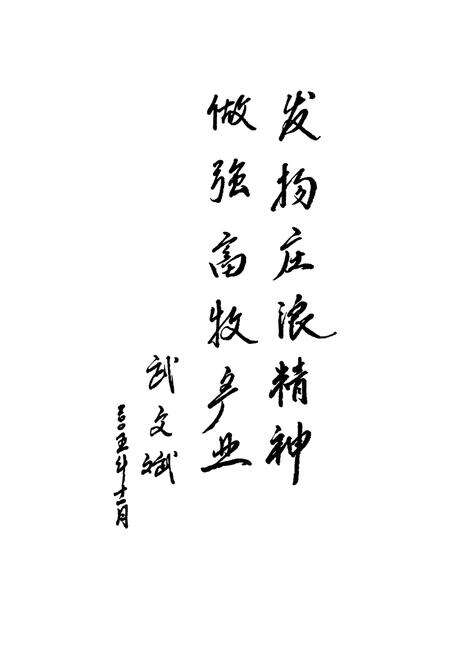 发扬庄浪精神
做强畜牧产业
武文斌
二〇〇五年十二月